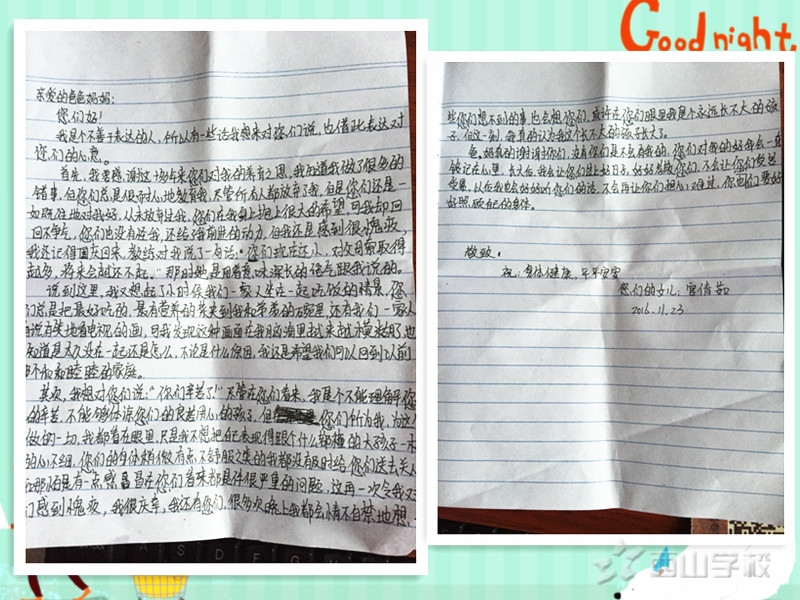 Good night.
亲爱的爸爸妈妈:
您们好!
我是个不善于表达的人,所以有一些话我想来对您们说,也借此表达对
您们的心意。
首先,我要感谢这十几年来您们对我的养育之恩,我知道我做了很多的
错事,但您们总是很耐心地教育我,尽管所有人都放弃了我,但是您们还是一
如既往地对我好,从未放弃过我,您们在我身上抱上很大的希望,可我却回
回不争气,您们也没有怪我,还给我前进的动力,但我还是感到很愧疚,
我还记得国庆回来,教练对我说了一句话:"你们现在还小,对父母索取得
越多,将来会越还不起。"那时她是用着意味深长的语气跟我说的。
说到这里,我又想起了小时侯我们一家人坐在一起吃饭的情景,您
们总是把最好吃的,最有营养的菜夹到我和弟弟的碗里,还有我们一家人
有说有笑地看电视的画,可我发现这种画面在我的脑海里越来越模糊了,也
知道是太久没在一起还是怎么,不论是什么原因,我还是希望我们可以回到以前
那个和和睦睦的家庭。
其次,我想对您们说:"你们辛苦了!"尽管在您们看来,我是个不能理解你
的辛苦,不能够体谅您们的良苦用心的孩子,但 您们所为我,为这
做的一切,我都看在眼里,只是我不想把自己表现得跟个什么都懂的大孩子一
的心不细,您们的身体稍微有点不舒服之类的我都没有及时给您们送去关
那怕是有一点感冒在您们看来都是件很严重的问题,这再一次令我又
们感到愧疚,我很庆幸,我还有您们,很多次晚上我都会情不自禁地想
些您们想不到的事,也会想您们,或许在您们眼里我是个永远长不大的孩
子,但这一刻,我真的认为我这个长不大的孩子长大了。
爸、妈真的谢谢你们,没有您们是不会有我的,您们对我的好我会一
铭记在心里,长大后,我会让您们过上好日子,好好孝敬您们,不会让您们受苦
受累,从而我也会好好听您们的话,不会再让你们担心,难过,你们要好
好照顾自己的身体。
敬致。
祝:身体健康,平平安安
您们的女儿:宫倩茹
2016.11.23
西山学校